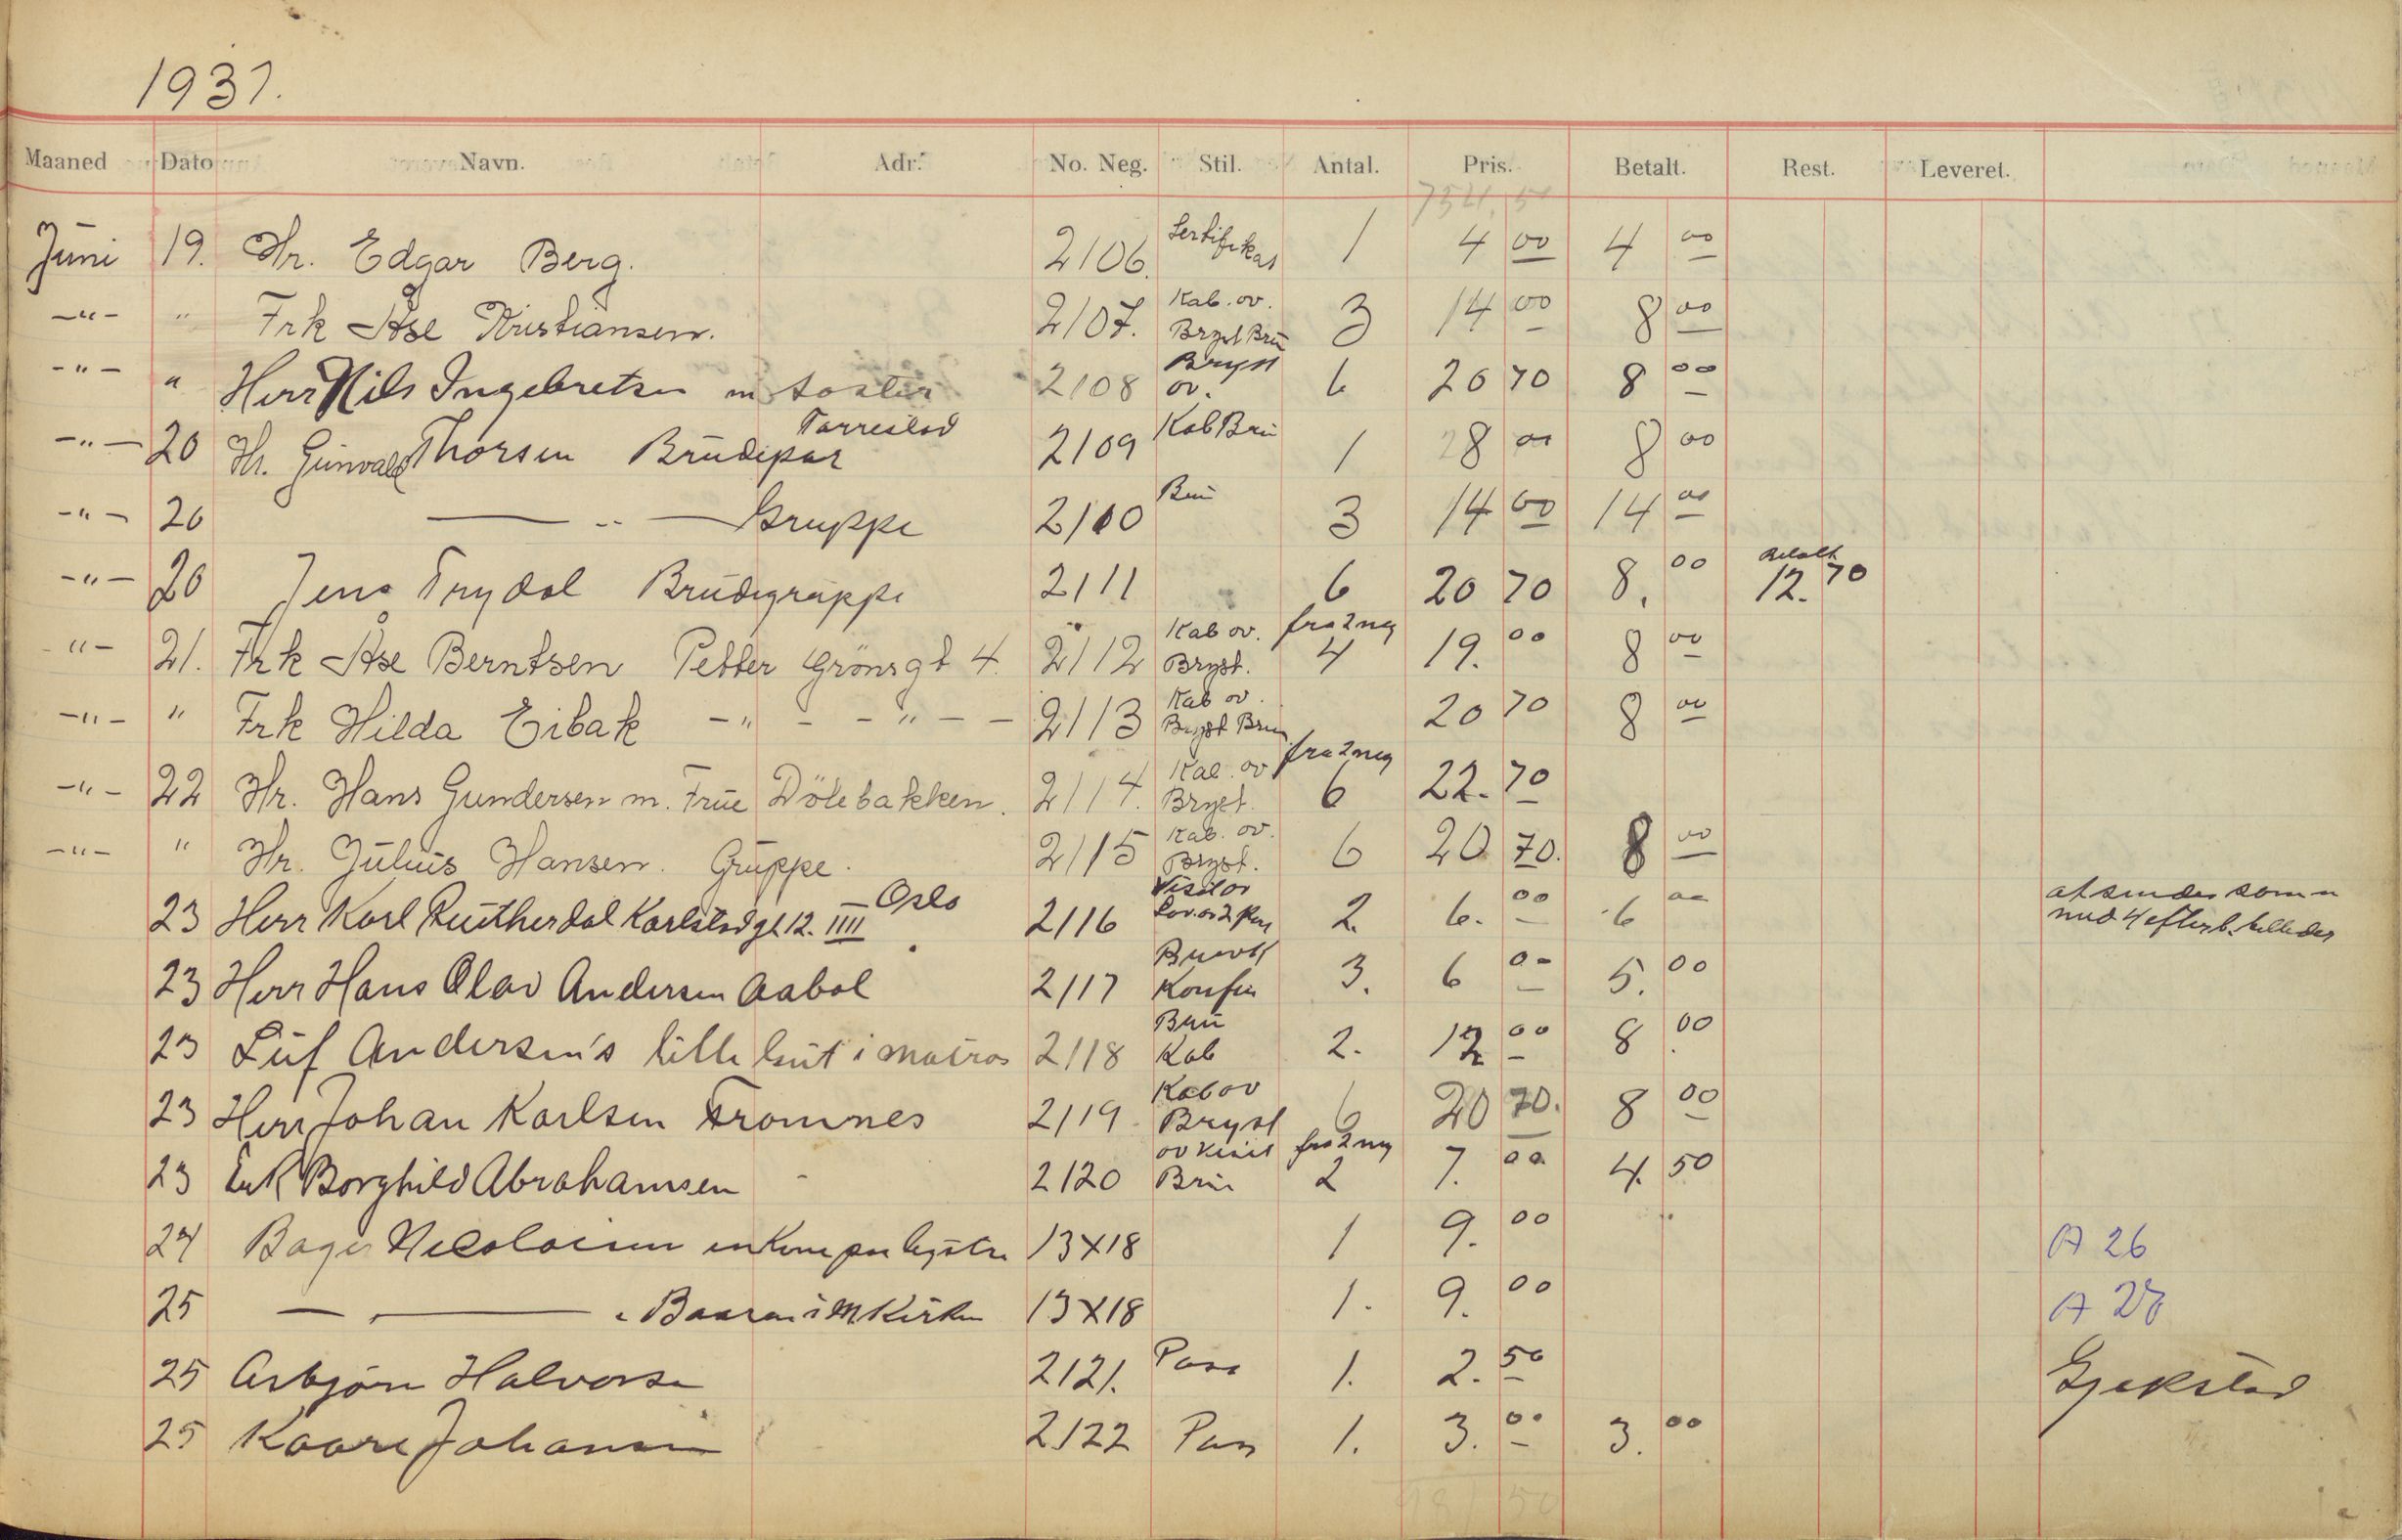 1937.
Maaned Dato Navn. Adr. No. Neg. Stil. Antal. Pris. Betalt. Rest. Leveret.
754.50
Juni 19. Hr. Edgar Berg. 2106. Sertifikat 1 4 00 4 00
-"- " Frk Åse Kristiansen. 2107. Kab. ov. Bryst Brun 3 14 00 8 00
-"- " Herr Nils Ingebretsen m søster 2108 Bryst ov. 6 20 70 8 00
-"- 20 Hr. Gunvald Thorsen Brudepar Torrestad 2109 Kab Brun 1 8 00 8 00
-"- 20 -"- Gruppe 2110 Brun 3 14 00 14 00
-"- 20 Jens Trydal Brudegruppe 2111 6 20 70 8. 00 Betalt 12. 70
-"- 21. Frk Åse Berntsen Petter Grönsgt 4. 2112 Kab ov. Bryst. fra 2 neg 4 19. 00 8 00
-"- " Frk Hilda Eibak -"- -"- - 2113 Kab ov. Bryst Brun 20 70 8 00
-"- 22 Hr. Hans Gundersen m. Frue Dölebakken. 2114. Kab. ov Bryst. fra 2 neg 6 22. 70
-"- " Hr. Julius Hansen. Gruppe. 2115 Kab. ov. Bryst. 6 20 70. 8 00
23 Herr Karl Rutherdal Karlstadgt 12. IIII Oslo 2116 Visit ov 2. 6. 00 6 00 afsendes
med 4 efterb. billeder
23 Herr Hans Olav Andersen Aabol 2117 Konfir 3. 6 00 5. 00
23 Leif Andersen's lille gut i matros 2118 Brun Kab 2. 12 00 8 00
23 Herr Johan Karlsen Fromnes 2119 Kab ov Bryst 6 20 70. 8 00
23 Frk Borghild Abrahamsen 2120 ov visit Brun fra 2 neg 2 7. 00 4. 50
24 Bager Nicolaisen 13X18 1 9. 00 A 26
25 -"- Baaren i Kirken 13X18 1. 9. 00 A 28
25 Asbjörn Halvorsen 2121. Pass 1. 2. 50 Gjekstad
25 Kaare Johansen 2122 Pass 1. 3. 00 3. 00